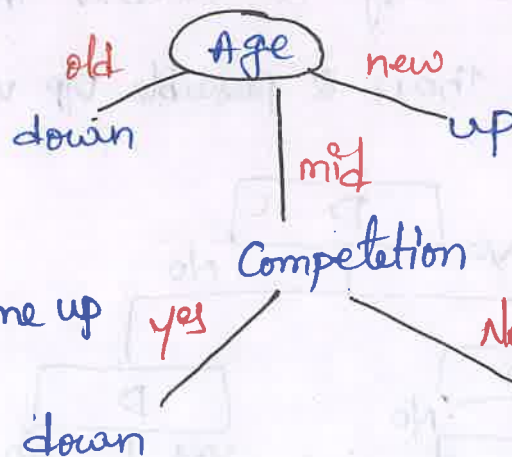 Age
old
new
down
up
mid
Competetion
ne up
yes
No
down